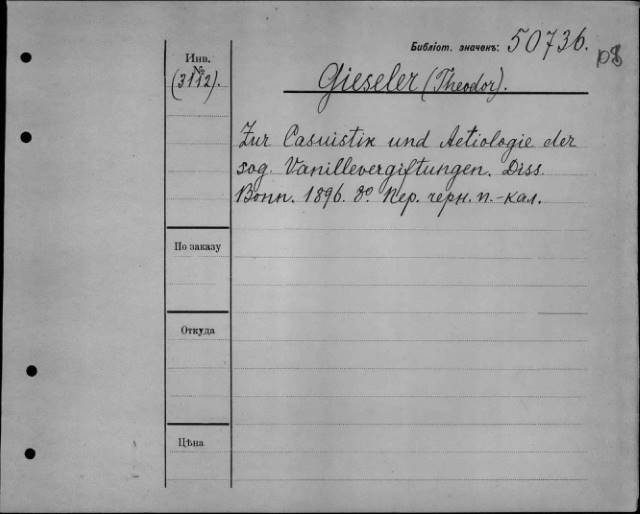 Библіот. значекъ: 50736.
Инв. №
(3112).
Gieseler (Theodor).
Zur Casuistik und Aetiologie der
sog. Vanillevergiftungen. Diss.
Bonn. 1896. 8º Кер. черн. п.-кал.
По заказу
Откуда
Цѣна